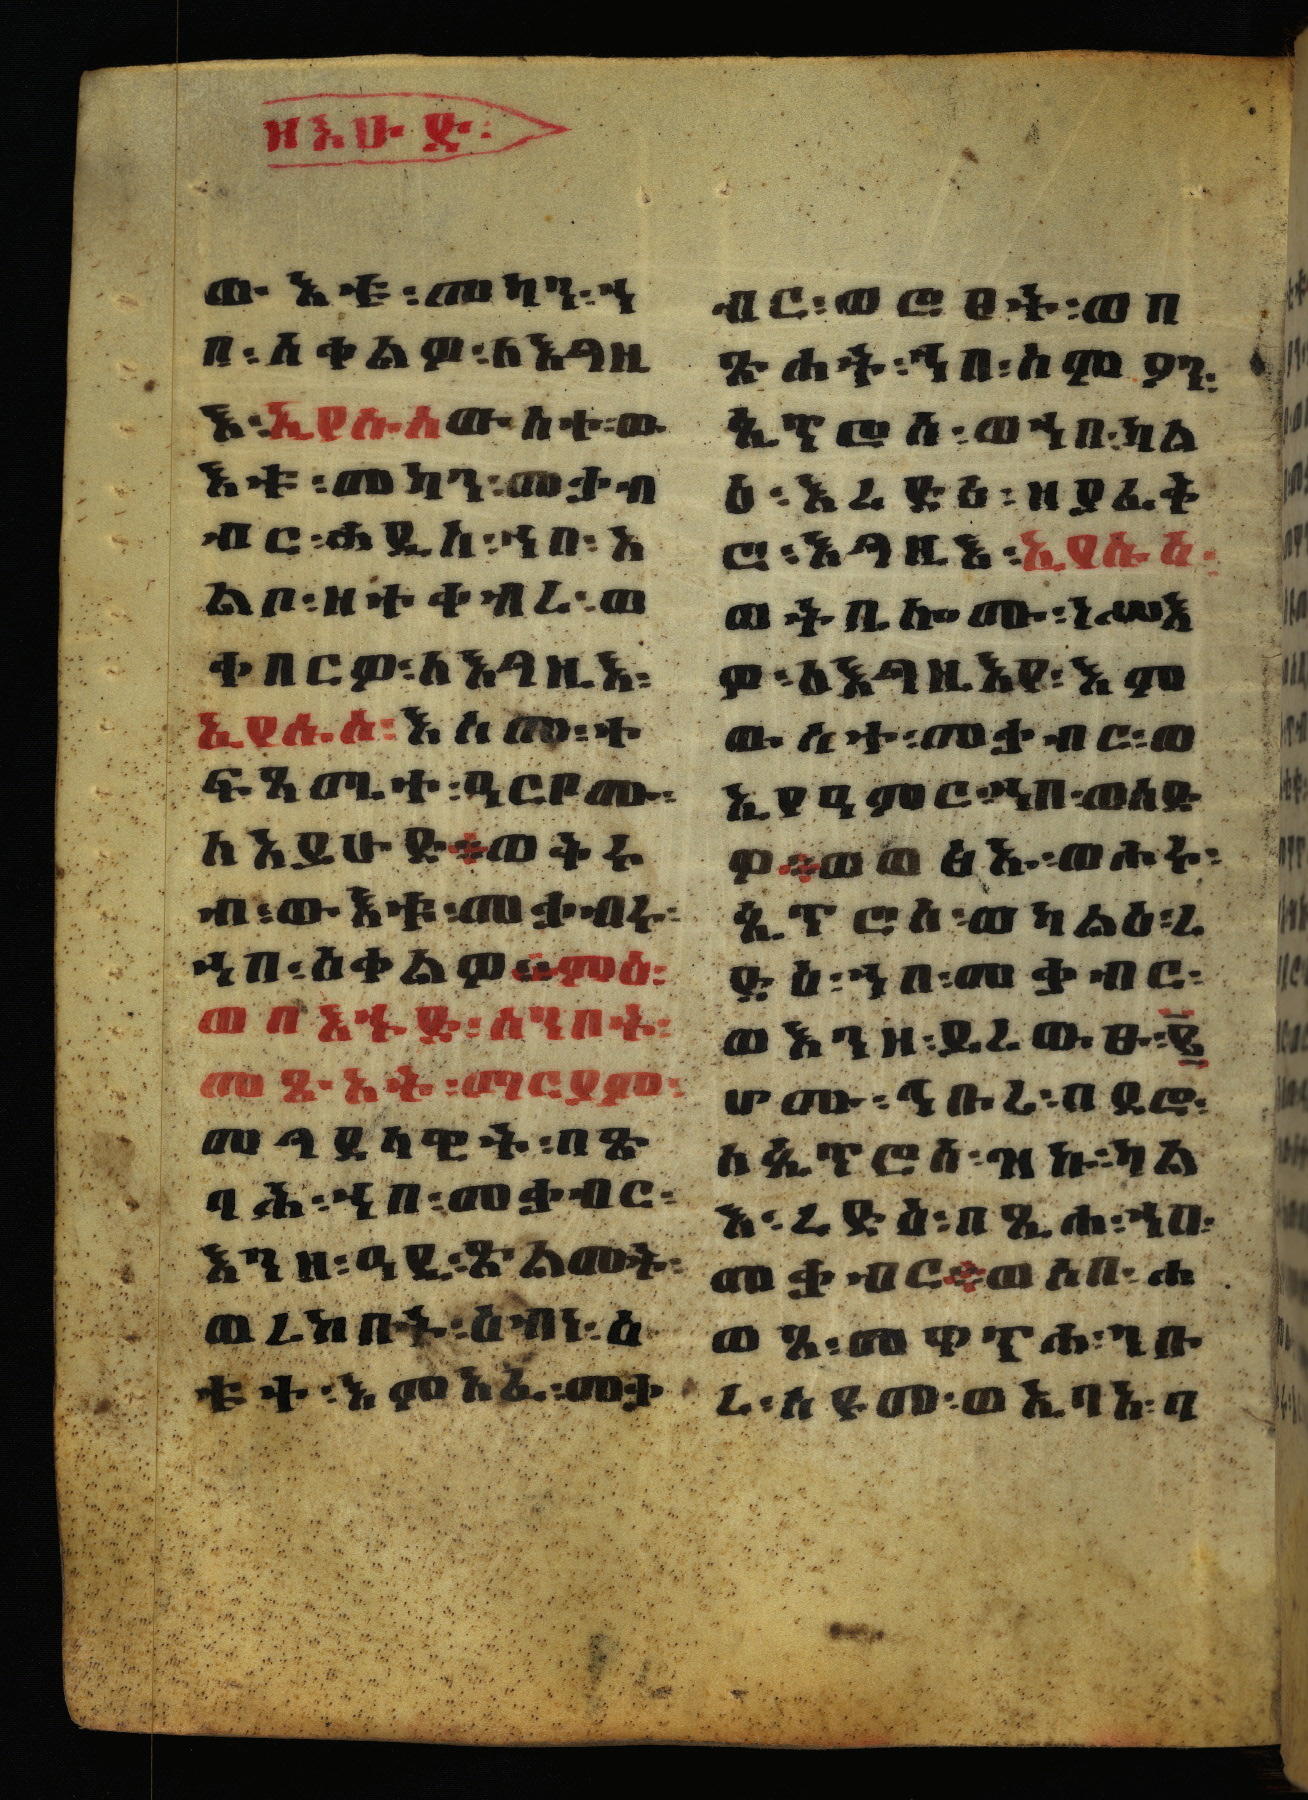 ዘእሁድ፡
ውእቱ፡መካን፡ኀ
በ፡ሰቀልዎ፡ለእግዚ
እ፡ኢየሱስውስተ፡ው
እቱ፡መካን፡መቃብ
ብር፡ሐዲስ፡ኀበ፡አ
ልቦ፡ዘተቀብረ፡ወ
ቀበርዎ፡ለእግዚእ፡
ኢየሱስ፡እስመ፡ተ
ፍጻሜተ፡ዓርቦሙ፡
ለአይሁድ፡ወቅሩ
ብ፡ውእቱ፡መቃብሩ፡
ኀበ፡ሰቀልዎ፡ምዕ፡
ወበእኁድ፡ሰንበት፡
መጽአት፡ማርያም፡
መግደላዊት፡በጽ
ባሕ፡ኀበ፡መቃብር፡
እንዘ፡ዓዲ፡ጽልመት፡
ወረከበት፡ዕብነ፡ዕ
ቱተ፡እምአፈ፡መቃ
ብር፡ወሮፀት፡ወበ
ጽሐት፡ኀበ፡ስምዖን፡
ጴጥሮስ፡ወኀበ፡ካል
ዕ፡እረድዕ፡ዘያፈቅ
ሮ፡እግዚእ፡ኢየሱስ፡
ወትቤሎሙ፡ነሥእ
ዎ፡ለእግዚእየ፡እም
ውስተ፡መቃብር፡ወ
ኢየዓምር፡ኀበ፡ወሰድ
ዎ፡ወወፅአ፡ወሖሩ፡
ጴጥሮስ፡ወካልዕ፡ረ
ድዕ፡ኀበ፡መቃብር፡
ወእንዘ፡ይረውፁ፡፪
ሆሙ፡ኅቡረ፡በደሮ፡
ለጴጥሮስ፡ዝኩ፡ካል
እ፡ረድዕ፡በጺሐ፡ኀበ፡
መቃብር፡ወሰበ፡ሐ
ወጸ፡መዋጥሐ፡ንቡ
ረ፡ሰዶሙ፡ወኢባእ፡ባ